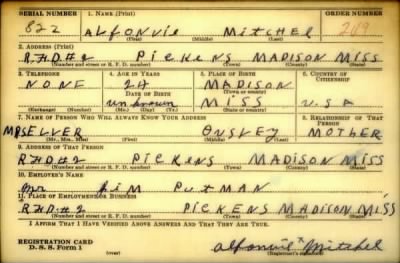 SERIAL NUMBER 1. NAME (Print) ORDER NUMBER
822 Alfonvie Mitchel 249
(First) (Middle) (Last)
2. ADDRESS (Print)
R.H.D.#2 Pickens Madison Miss
(Number and street or R. F. D. number) (Town) (County) (State)
3. TELEPHONE 4. AGE IN YEARS 5. PLACE OF BIRTH 6. COUNTRY OF CITIZENSHIP
None 24 Madison
DATE OF BIRTH (Town or county)
unknown Miss U.S.A
(Exchange) (Number) (Mo.) (Day) (Yr.) (State or country)
7. NAME OF PERSON WHO WILL ALWAYS KNOW YOUR ADDRESS 8. RELATIONSHIP OF THAT PERSON
Mrs Ellver Ousley Mother
(Mr., Mrs., Miss) (First) (Middle) (Last)
9. ADDRESS OF THAT PERSON
R.H.D.#2 Pickens Madison Miss
(Number and street or R. F. D. number) (Town) (County) (State)
10. EMPLOYER'S NAME
Mr Jim Putman
11. PLACE OF EMPLOYMENT OR BUSINESS
R.H.D.#2 Pickens Madison Miss
(Number and street or R. F. D. number) (Town) (County) (State)
I AFFIRM THAT I HAVE VERIFIED ABOVE ANSWERS AND THAT THEY ARE TRUE.
REGISTRATION CARD
D. S. S. Form 1 (over) Alfonvie x Mitchel
(Registrant's signature)